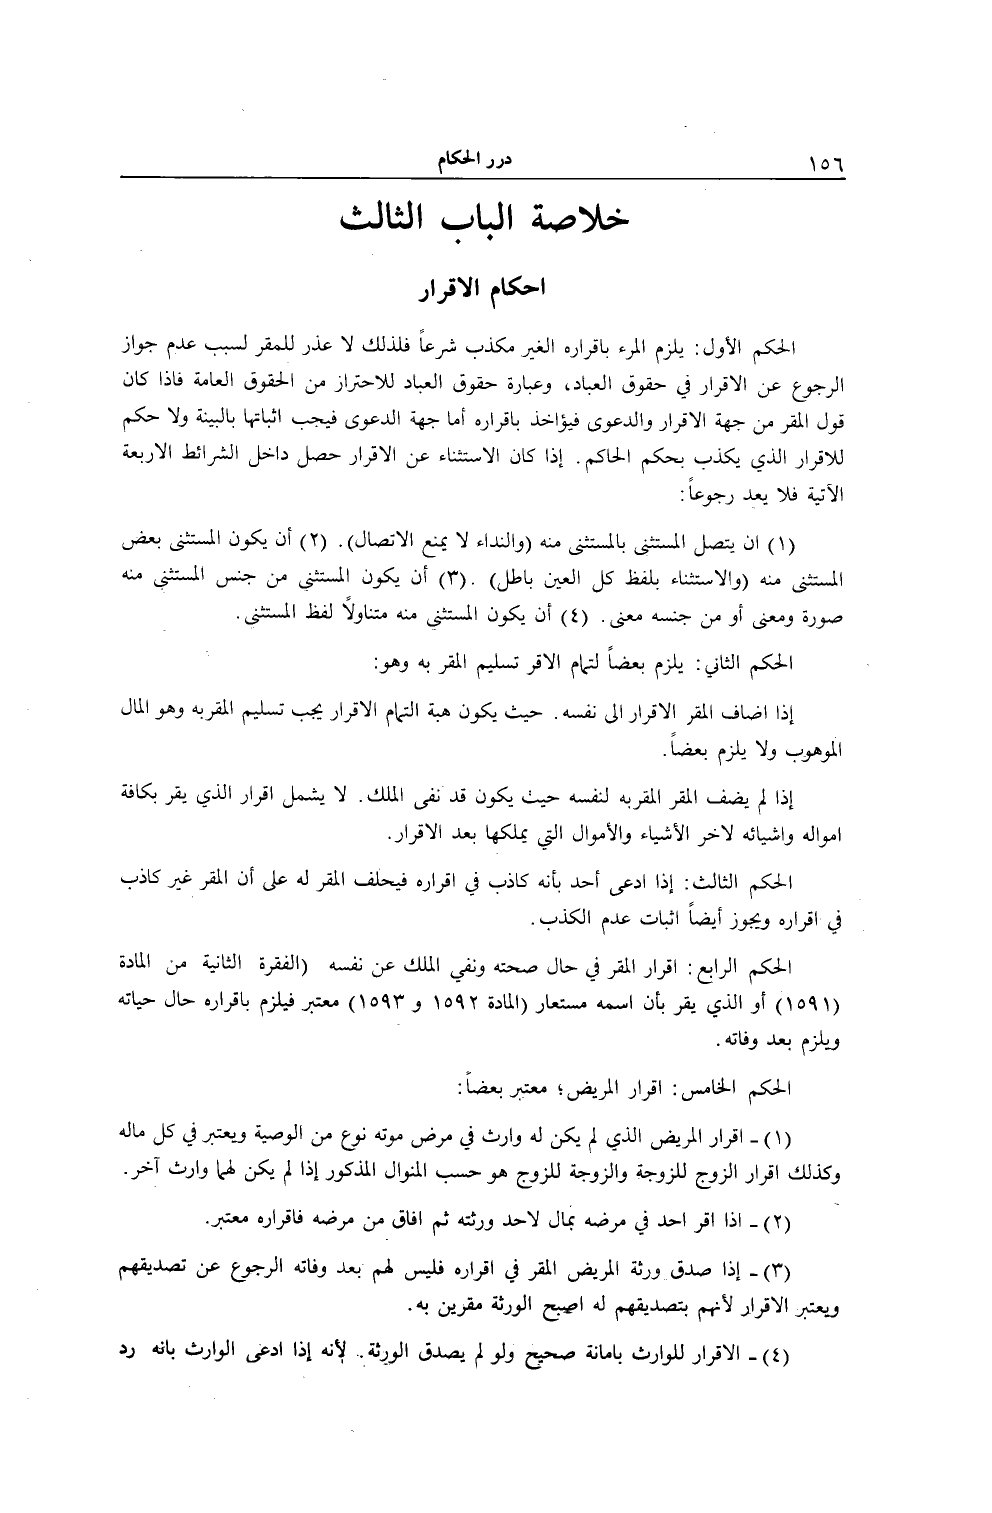 ١٥٦
درر الحكام
خلاصة الباب الثالث
احكام الاقرار
الحكم الأول: يلزم المرء باقراره الغير مكذب شرعاً فلذلك لا عذر للمقر لسبب عدم جواز
الرجوع عن الاقرار في حقوق العباد، وعبارة حقوق العباد للاحتراز من الحقوق العامة فاذا كان
قول المقر من جهة الاقرار والدعوى فيؤاخذ باقراره أما جهة الدعوى فيجب اثباتها بالبينة ولا حكم
للاقرار الذي يكذب بحكم الحاكم. إذا كان الاستثناء عن الاقرار حصل داخل الشرائط الاربعة
الآتية فلا يعد رجوعاً:
(١) ان يتصل المستثنى بالمستثنى منه (والنداء لا يمنع الاتصال). (٢) أن يكون المستثنى بعض
المستثنى منه (والاستثناء بلفظ كل العين باطل) .(٣) أن يكون المستثنى من جنس المستثنى منه
صورة ومعنى أو من جنسه معنى. (٤) أن يكون المستثنى منه متناولاً لفظ المستثنى.
الحكم الثاني: يلزم بعضاً لتمام الاقر تسليم المقر به وهو:
إذا اضاف المقر الاقرار الى نفسه. حيث يكون هبة التمام الاقرار يجب تسليم المقربه وهو المال
الموهوب ولا يلزم بعضاً.
إذا لم يضف المقر المقربه لنفسه حيث يكون قد نفى الملك. لا يشمل اقرار الذي يقر بكافة
امواله واشيائه لاخر الأشياء والأموال التي يملكها بعد الاقرار.
الحكم الثالث: إذا ادعى أحد بأنه كاذب في اقراره فيحلف المقر له على أن المقر غير كاذب
في اقراره ويجوز أيضاً اثبات عدم الكذب.
الحكم الرابع: اقرار المقر في حال صحته ونفي الملك عن نفسه (الفقرة الثانية من المادة
(١٥٩١) أو الذي يقر بأن اسمه مستعار (المادة ١٥٩٢ و ١٥٩٣) معتبر فيلزم باقراره حال حياته
ويلزم بعد وفاته.
الحكم الخامس: اقرار المريض؛ معتبر بعضاً:
(١)ـ اقرار المريض الذي لم يكن له وارث في مرض موته نوع من الوصية ويعتبر في كل ماله
وكذلك اقرار الزوج للزوجة والزوجة للزوج هو حسب المنوال المذكور إذا لم يكن لهما وارث آخر.
(٢)ـ اذا اقر احد في مرضه بمال لاحد ورثته ثم افاق من مرضه فاقراره معتبر.
(٣)ـ إذا صدق ورثة المريض المقر في اقراره فليس لهم بعد وفاته الرجوع عن تصديقهم
ويعتبر الاقرار لأنهم بتصديقهم له اصبح الورثة مقرين به.
(٤)ـ الاقرار للوارث بامانة صحيح ولو لم يصدق الورثة. لأنه إذا ادعى الوارث بانه رد